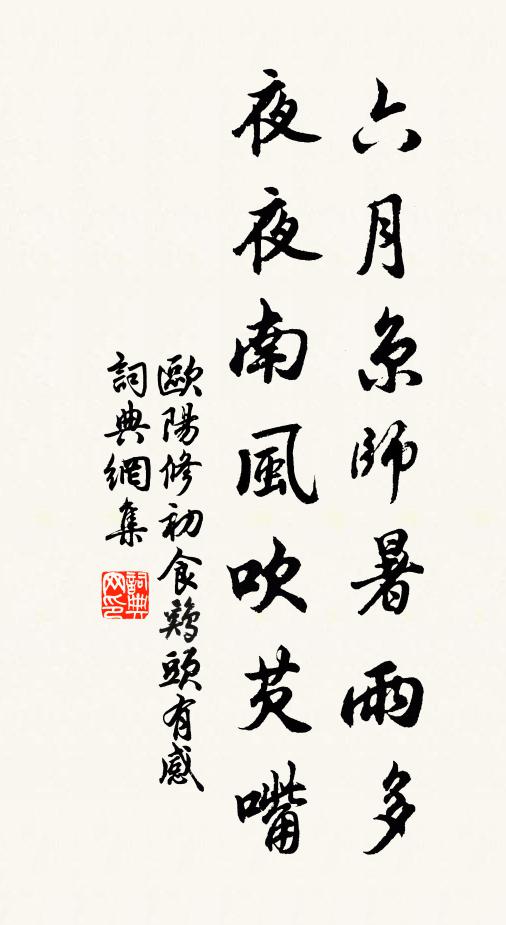 六月京師暑雨多
夜夜南風吹芡嘴
歐陽修初食鷄頭有感
詞典網集
詞典网印